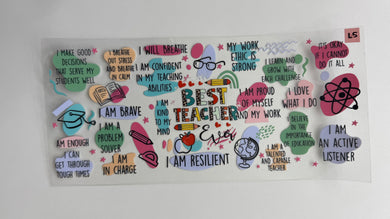 I MAKE GOOD
DECISIONS
THAT SERVE MY
STUDENTS WELL
I BREATHE
OUT STRESS
AND BREATHE
IN CALM
I WILL BREATHE
I AM CONFIDENT
IN MY TEACHING
ABILITIES.
MY WORK
ETHIC IS
STRONG
I LEARN AND
GROW WITH
EACH CHALLENGE
IT'S OKAY
IF I CANNOT
DO IT ALL
L5
I AM BRAVE
I AM A
PROBLEM
SOLVER
I AM
KIND
TO MY
MIND
BEST
TEACHER
Ever
I AM PROUD
OF MYSELF
AND MY WORK
I LOVE
WHAT I DO
I BELIEVE
IN THE
IMPORTANCE
OF EDUCATION
I AM
AN ACTIVE
LISTENER
AM ENOUGH
I CAN
GET THROUGH
TOUGH TIMES
I AM
IN CHARGE
I AM RESILIENT
I AM A
TALENTED
AND CAPABLE
TEACHER